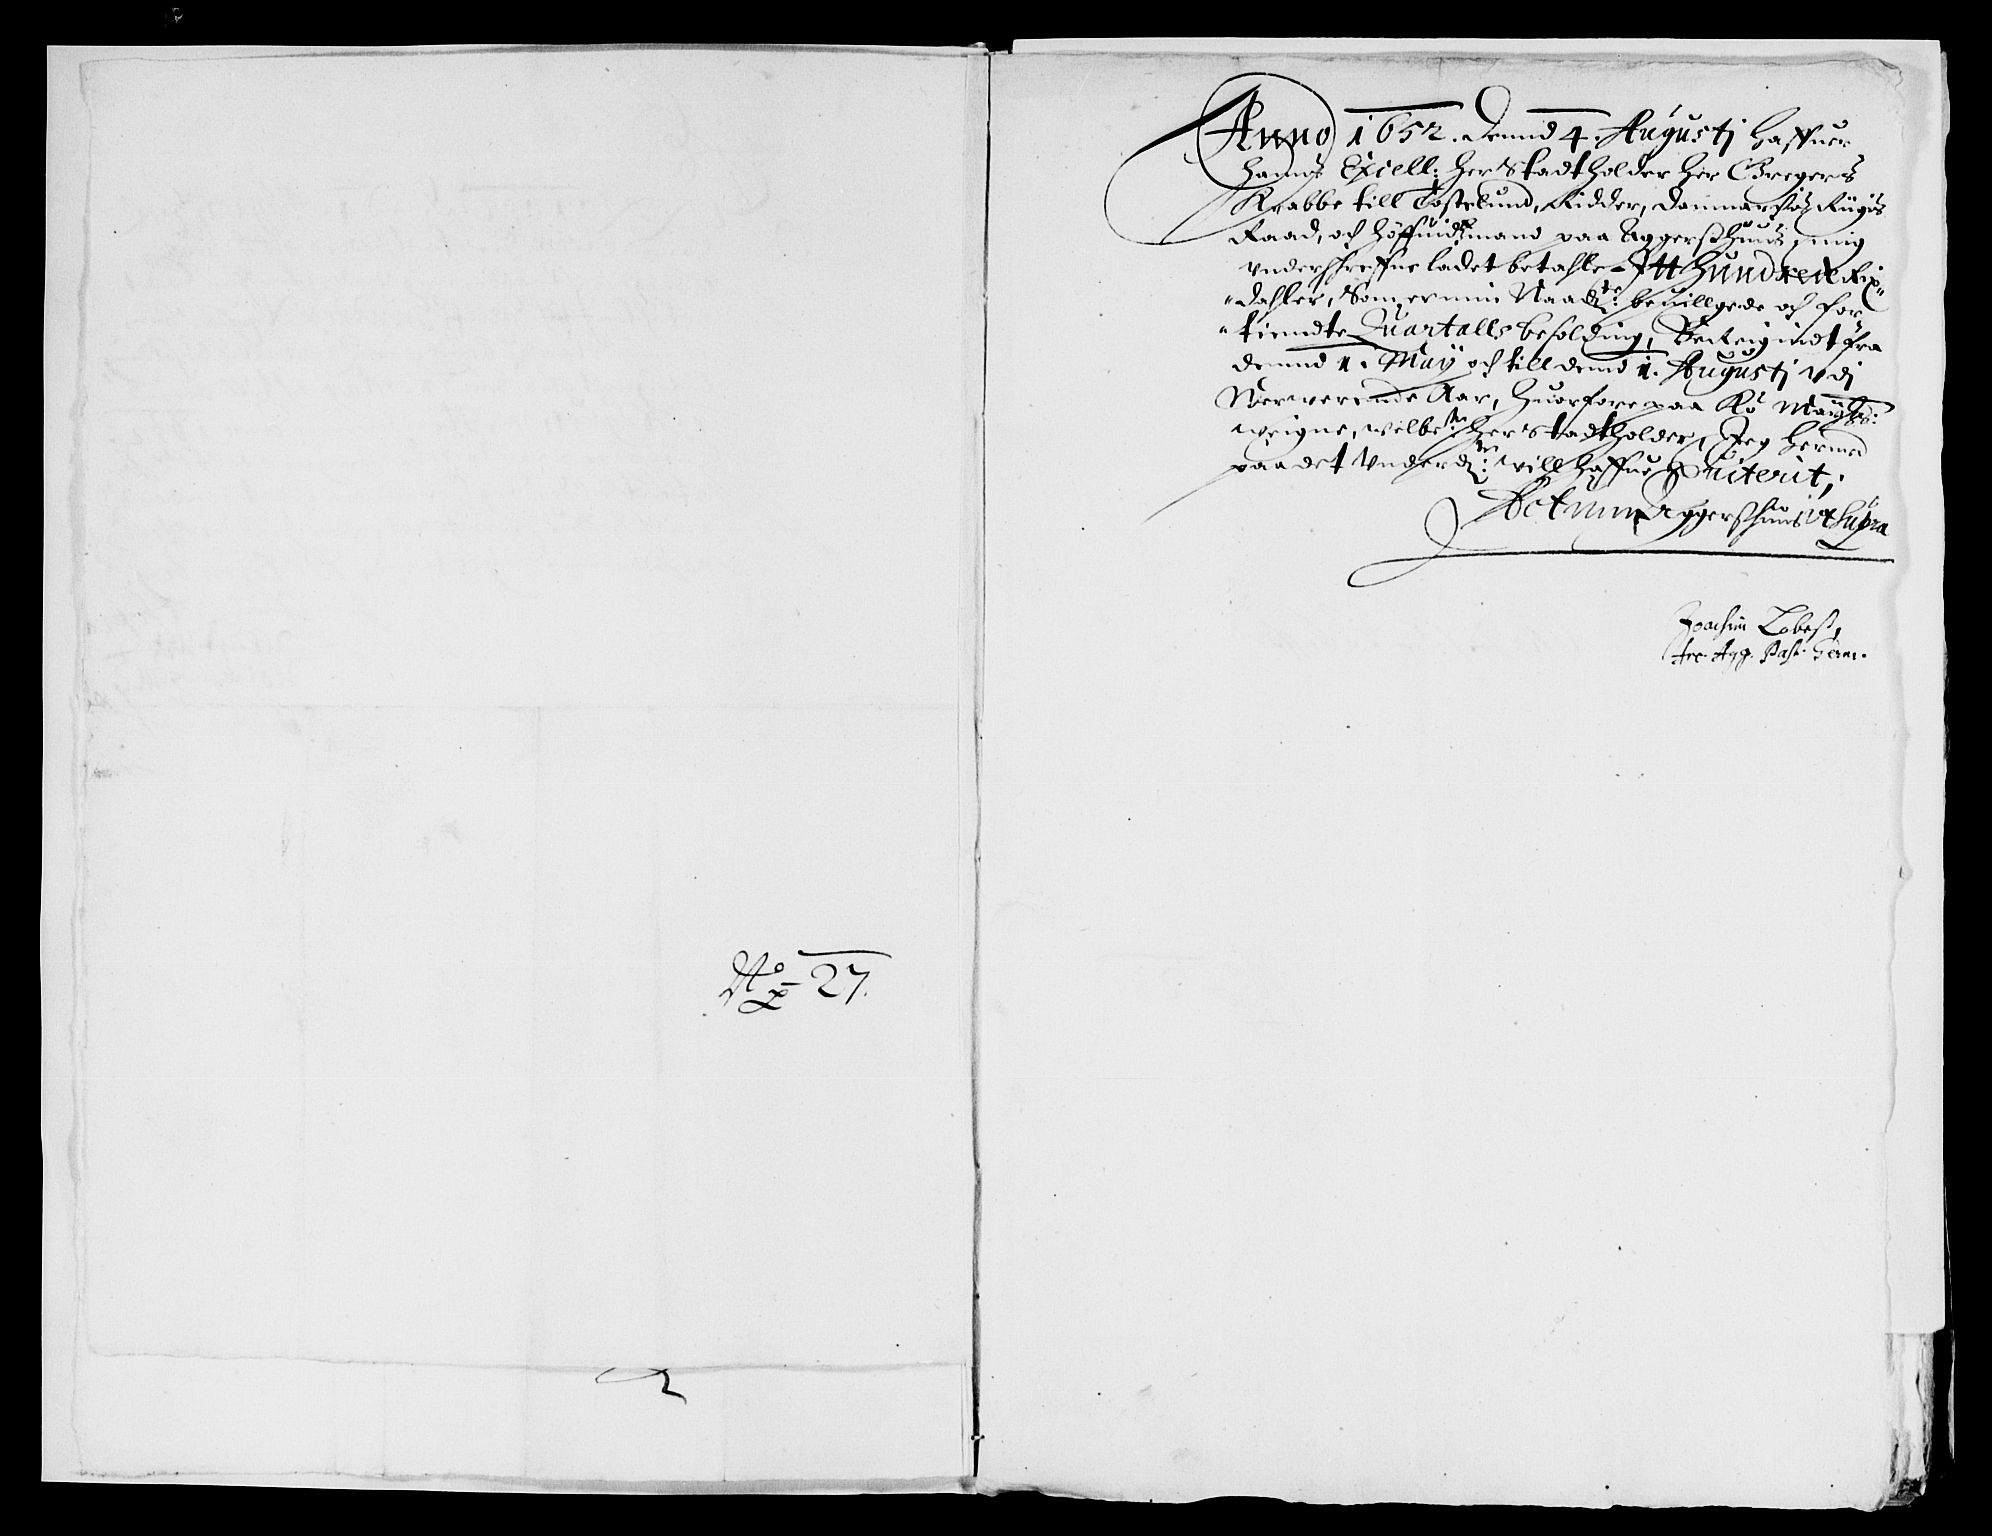 No 27.
Anno 1652. dennd 4. Augustj haffuer
hanns Exiell: Her Stadtholder Her Gregers
Krabbe till Tostelund, Ridder, Danmarckis Riigis
Raad, och Höffuidzmand paa Aggerszhuus, mig
vnderschreffne ladet betahle Itt Hundrede Rix
dahler, Som er min Naadte: beuillgede och for
tiendte Quartalls besolding, Bereignidt fra
dennd 1. Maÿ och till dennd 1. Augustj vdj
Nerwerende Aar, Huorfore paa Ko: Maÿtts:
weigne, welbete: Her Stadtholder, Jeg hermed
paa det Vnderdte: will haffue Quiterit,
Actum Aggerszhuus vt Supra
Joachim
Arc. Agg. Past.